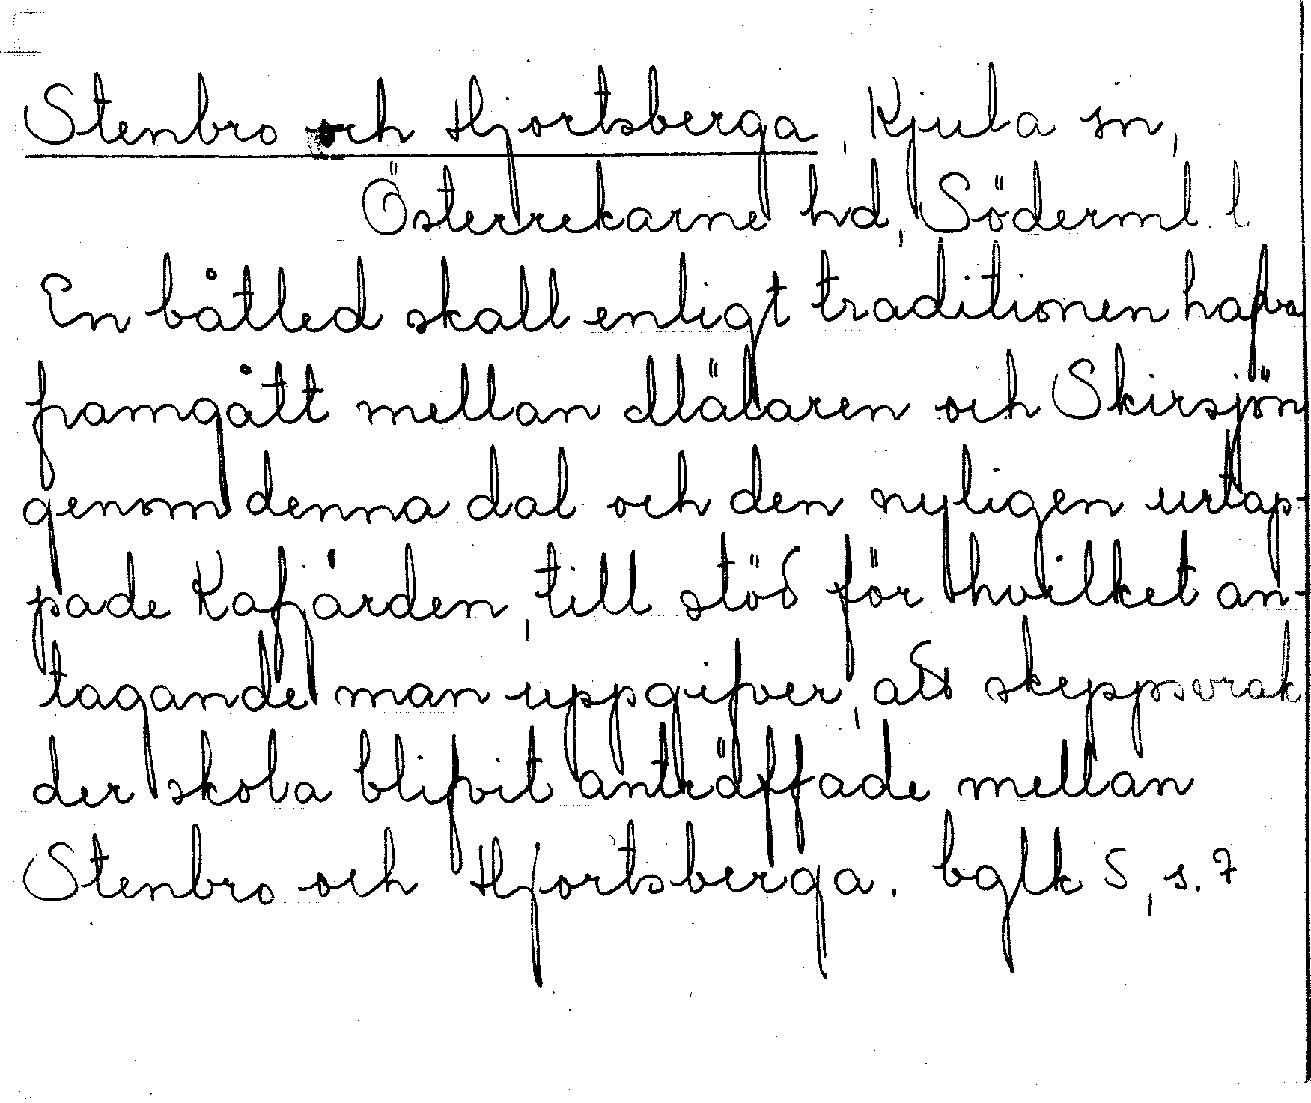 Stenbro och Hjortsberga, Kjula sn,
Österrekarne hd, Söderml. l.
En båtled skall enligt traditionen hafva
framgått mellan Mälaren och Skirsjön
genom denna dal och den nyligen urtap-
pade Kafjärden, till stöd för hvilket an-
tagande man uppgifver, att skeppsvrak
der skola blifvit anträffade mellan
Stenbro och Hjortsberga. bglk 5, s. 7